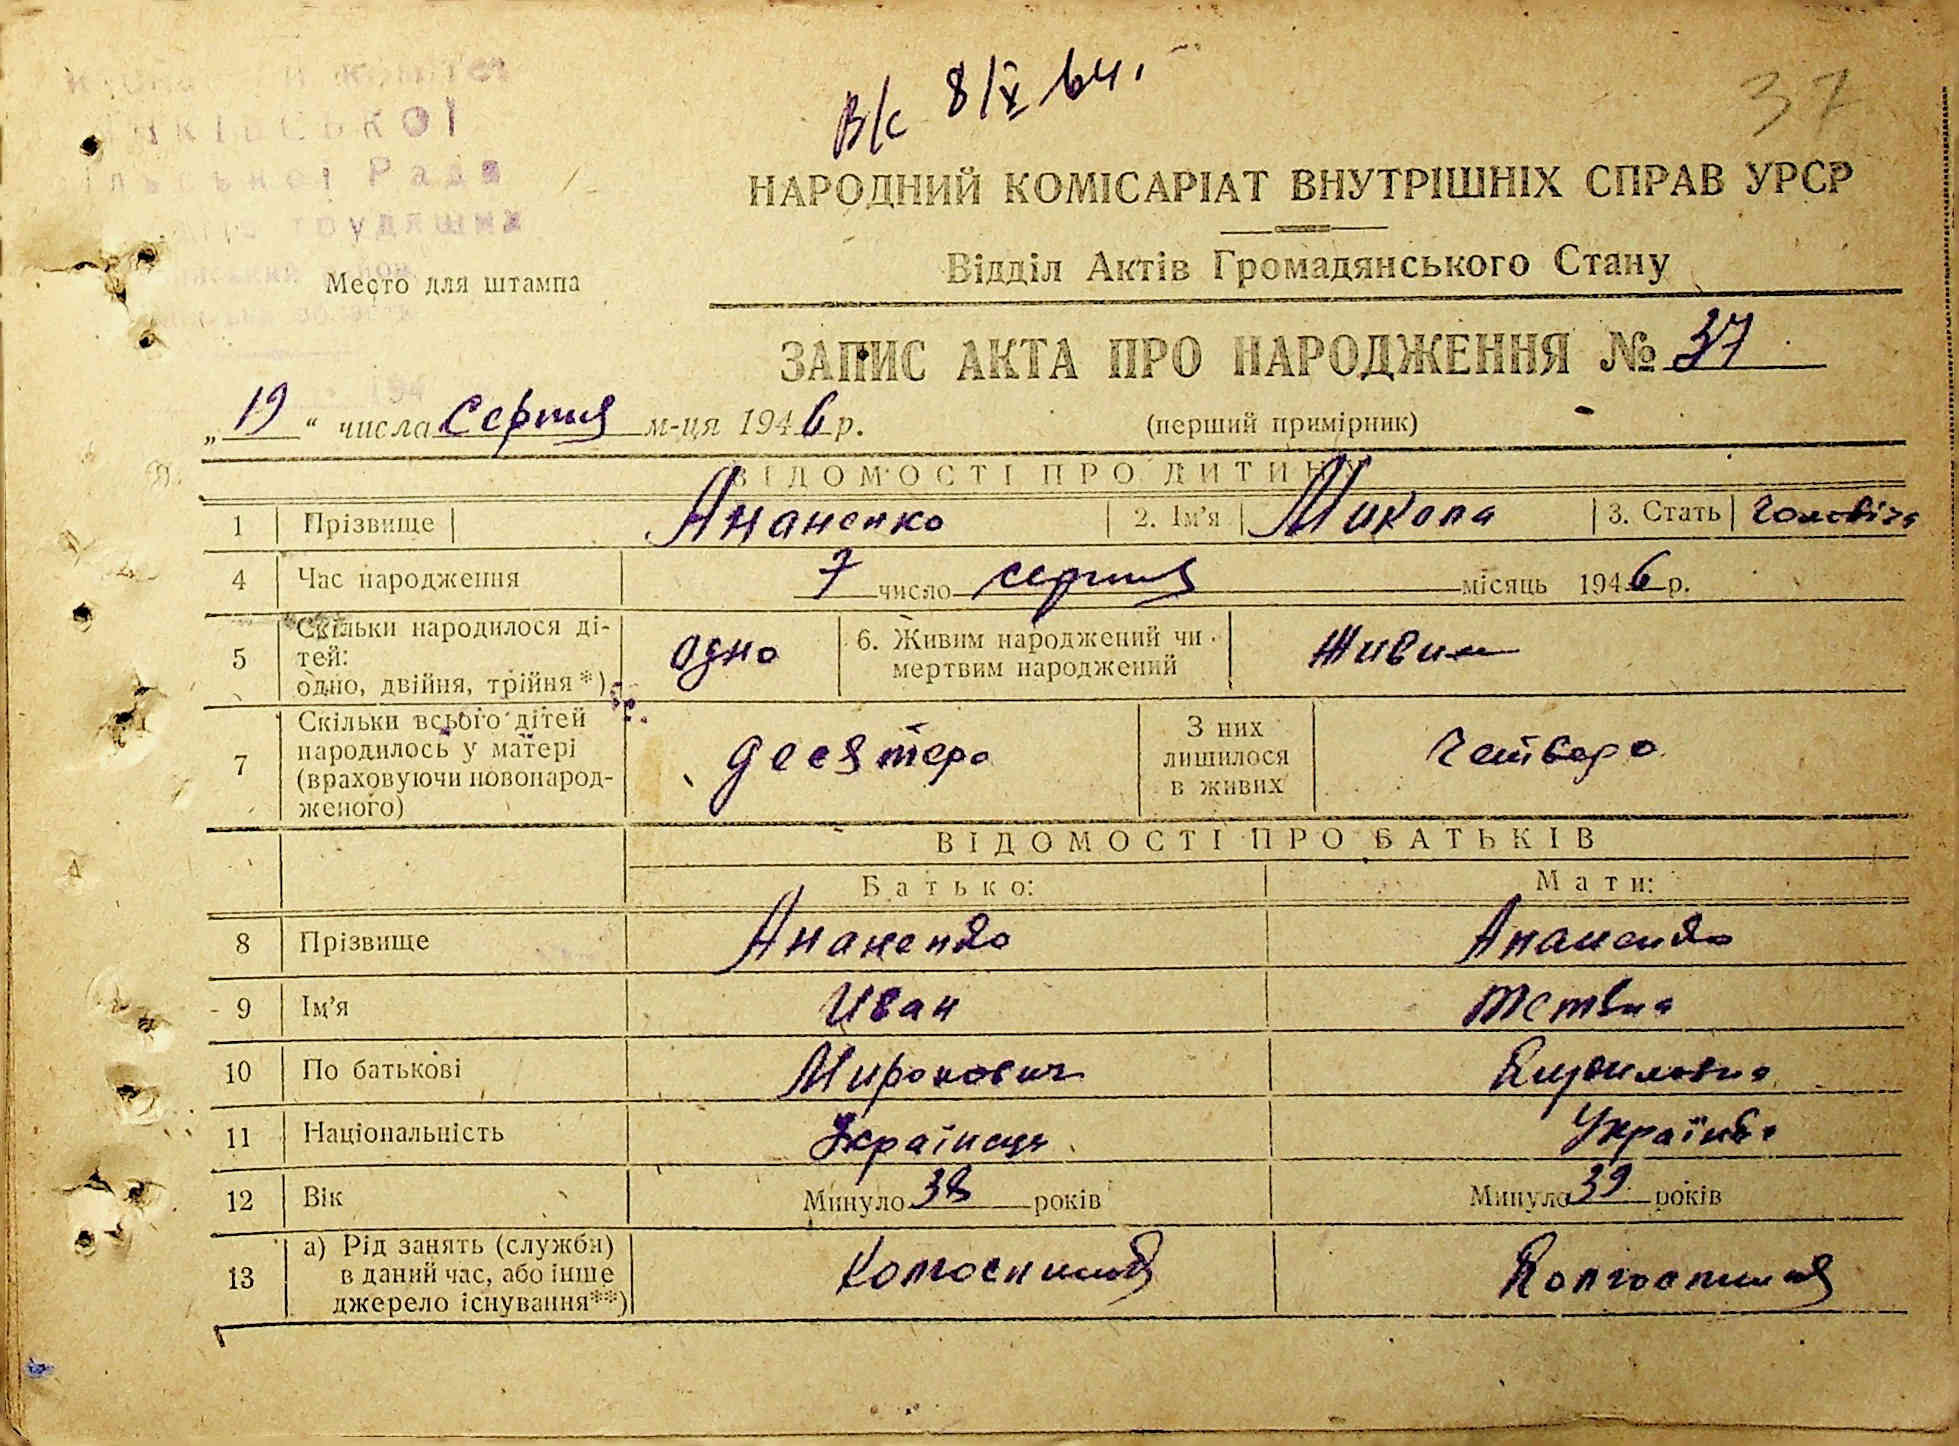 В/с 8/X 64.
37
НАРОДНИЙ КОМІСАРІАТ ВНУТРІШНІХ СПРАВ УРСР
Відділ Актів Громадянського Стану
Место для штампа
ЗАПИС АКТА ПРО НАРОДЖЕННЯ № 37
„19“ числа Серпня м-ця 1946 р.
(перший примірник)
ВІДОМОСТІ ПРО ДИТИНУ
1 Прізвище Ананенко 2. Ім'я Микола 3. Стать
4 Час народження 7 число серпня місяць 1946 р.
5 Скільки народилося ді-
тей:
одно, двійня, трійня*)
одно
6. Живим народжений чи
мертвим народжений
Живим
7 Скільки всього дітей
народилось у матері
(враховуючи новонарод-
женого)
десятеро
З них
лишилося
в живих
Четверо
ВІДОМОСТІ ПРО БАТЬКІВ
Батько: Мати:
8 Прізвище Ананенко Ананенко
9 Ім'я Иван
10 По батькові Миронович Кириловна
11 Національність Українець Українка
12 Вік Минуло 38 років Минуло 39 років
13 а) Рід занять (служби)
в даний час, або інше
джерело існування**)
Колгоспник Колгоспниця